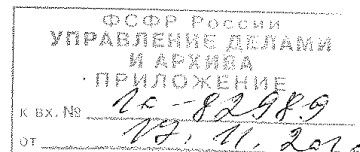 ФСФР России
УПРАВЛЕНИЕ ДЕЛАМИ
И АРХИВА
ПРИЛОЖЕНИЕ
к вх. № 10-82989
от 17.11.2010